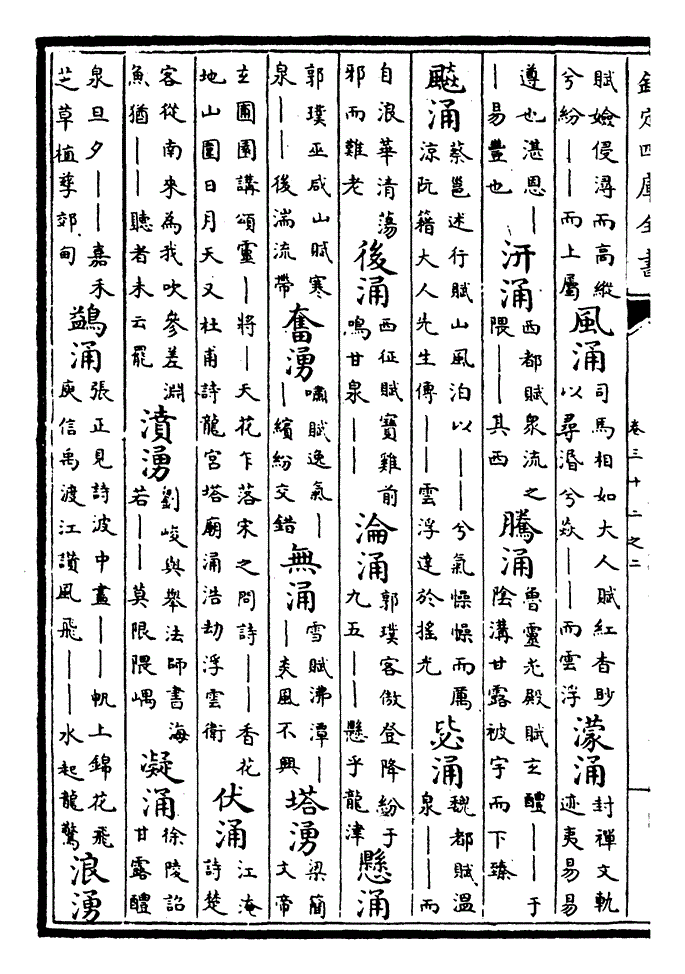 欽定四庫全書
卷三十二之二
賦嬐侵潯而高縱兮紛——而上屬 風涌 司馬相如大人賦紅杳眇以尋湣兮猋——而雲浮 濛涌 封禪文軌迹夷易易
遵也湛恩——易豐也 汧涌 西都賦衆流之隈——其西 騰涌 魯靈光殿賦玄醴——于陰溝甘露被宇而下臻
飈涌 蔡邕述行賦山風泊以——兮氣懆懆而厲涼阮籍大人先生傳——雲浮達於搖光 毖涌 魏都賦溫泉——而
自浪華清蕩邪而難老 後涌 西征賦寶雞前鳴甘泉—— 淪涌 郭璞客傲登降紛于九五——懸乎龍津 懸涌
郭璞巫咸山賦寒泉——後湍流帶 奮湧 嘯賦逸氣——繽紛交錯 無涌 雪賦沸潭——炎風不興 塔湧 梁簡文帝
玄圃園講頌靈—將—天花乍落宋之問詩——香花地山圍日月天又杜甫詩龍宮塔廟涌浩劫浮雲衛 伏涌 江淹詩楚
客從南來為我吹參差淵魚猶——聽者未云罷 濆湧 劉峻與舉法師書海若——莫限隈嵎 凝涌 徐陵詔甘露醴
泉旦夕——嘉禾芝草植孳郊甸 鷁涌 張正見詩波中畫——帆上錦花飛庾信禹渡江讚風飛——水起龍驚 浪湧